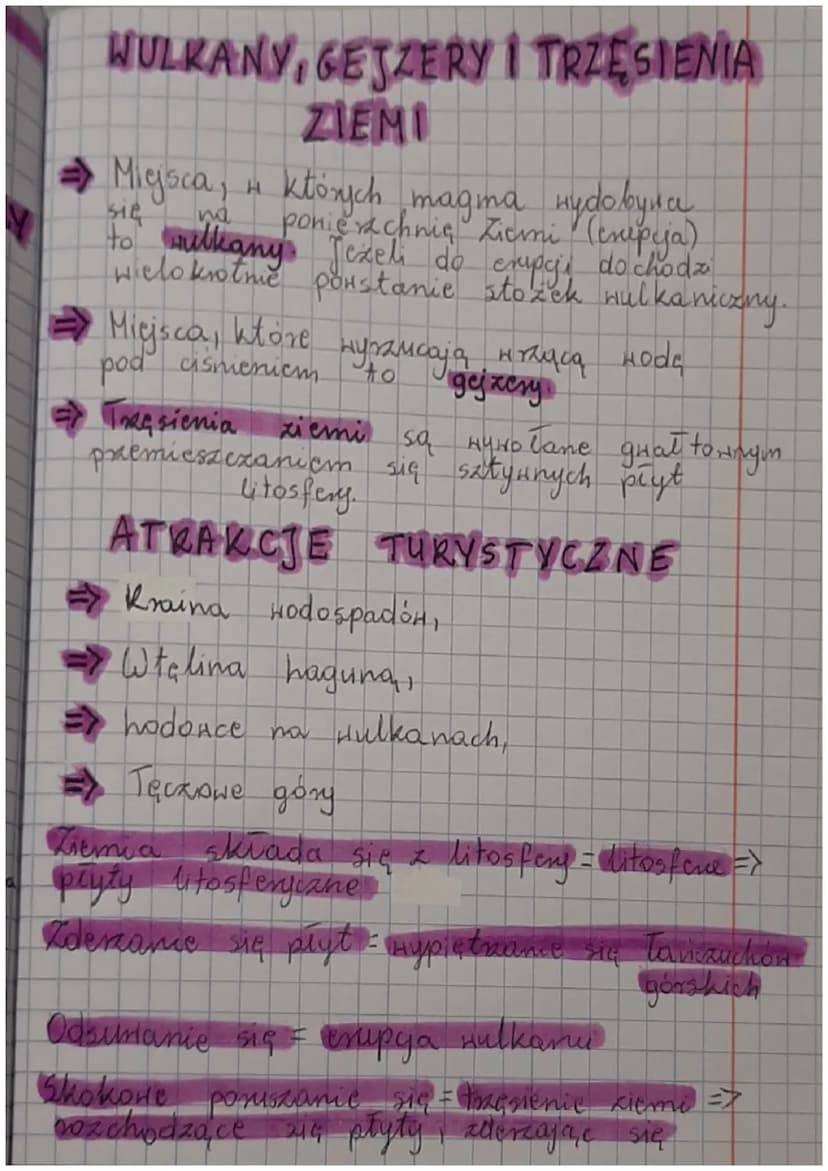 WULKANY, GEJZERY I TRZĘSIENIA
ZIEMI
⇒ Miejsca, w których magma wydobywa
się na powierzchnię Ziemi (erupcja)
to wulkany. Jeżeli do erupcji dochodzi
wielokrotnie powstanie stożek wulkaniczny.
⇒ Miejsca, które wyrzucają wrzącą wodę
pod ciśnieniem to gejzery.
⇒ Trzęsienia ziemi są wywołane gwałtownym
przemieszczaniem się sztywnych płyt
litosfery.
ATRAKCJE TURYSTYCZNE
⇒ Kraina wodospadów,
⇒ Wtęlina laguna,
⇒ lodowce na wulkanach,
⇒ Tęczowe góry
Ziemia składa się z litosfery = litosfera ⇒
płyty litosferyczne
Zderzanie się płyt = wypiętrzanie się łańcuchów
górskich
Odsuwanie się = erupcja wulkanu
Skokowe poruszanie się = trzęsienie ziemi ⇒
rozchodzące się płyty i zderzając się